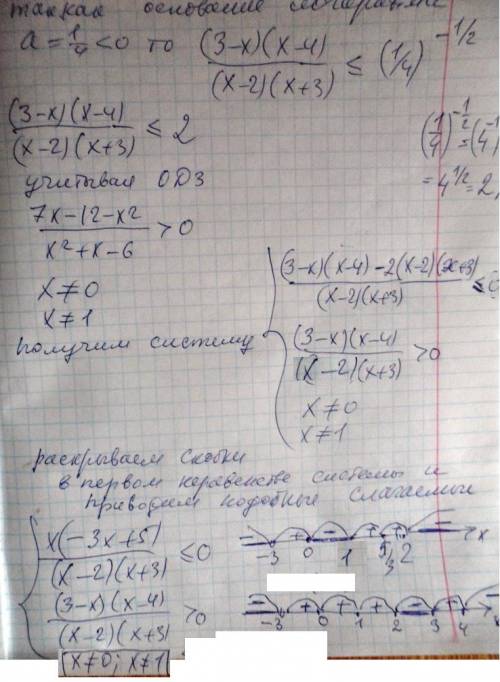 так как основание логарифма
a = 1/4 < 0 то (3-x)(x-4)/(x-2)(x+3) ≤ (1/4)^-1/2
(3-x)(x-4)/(x-2)(x+3) ≤ 2
(1/4)^-1/2 = (4^-1
= 4^1/2 = 2,
учитывая ОДЗ
7x-12-x²/x²+x-6 > 0
x ≠ 0
x ≠ 1
получим систему
(3-x)(x-4)-2(x-2)(x+3)/(x-2)(x+3) ≤ 0
(3-x)(x-4)/(x-2)(x+3) > 0
x ≠ 0
x ≠ 1
раскрываем скобки
в первом неравенстве системы и
приводим подобные слагаемые
x(-3x+5)/(x-2)(x+3) ≤ 0
- + - + + -
-3 0 1 5/3 2 x
(3-x)(x-4)/(x-2)(x+3) > 0
-3 0 1 2 3 4
x≠0; x≠1